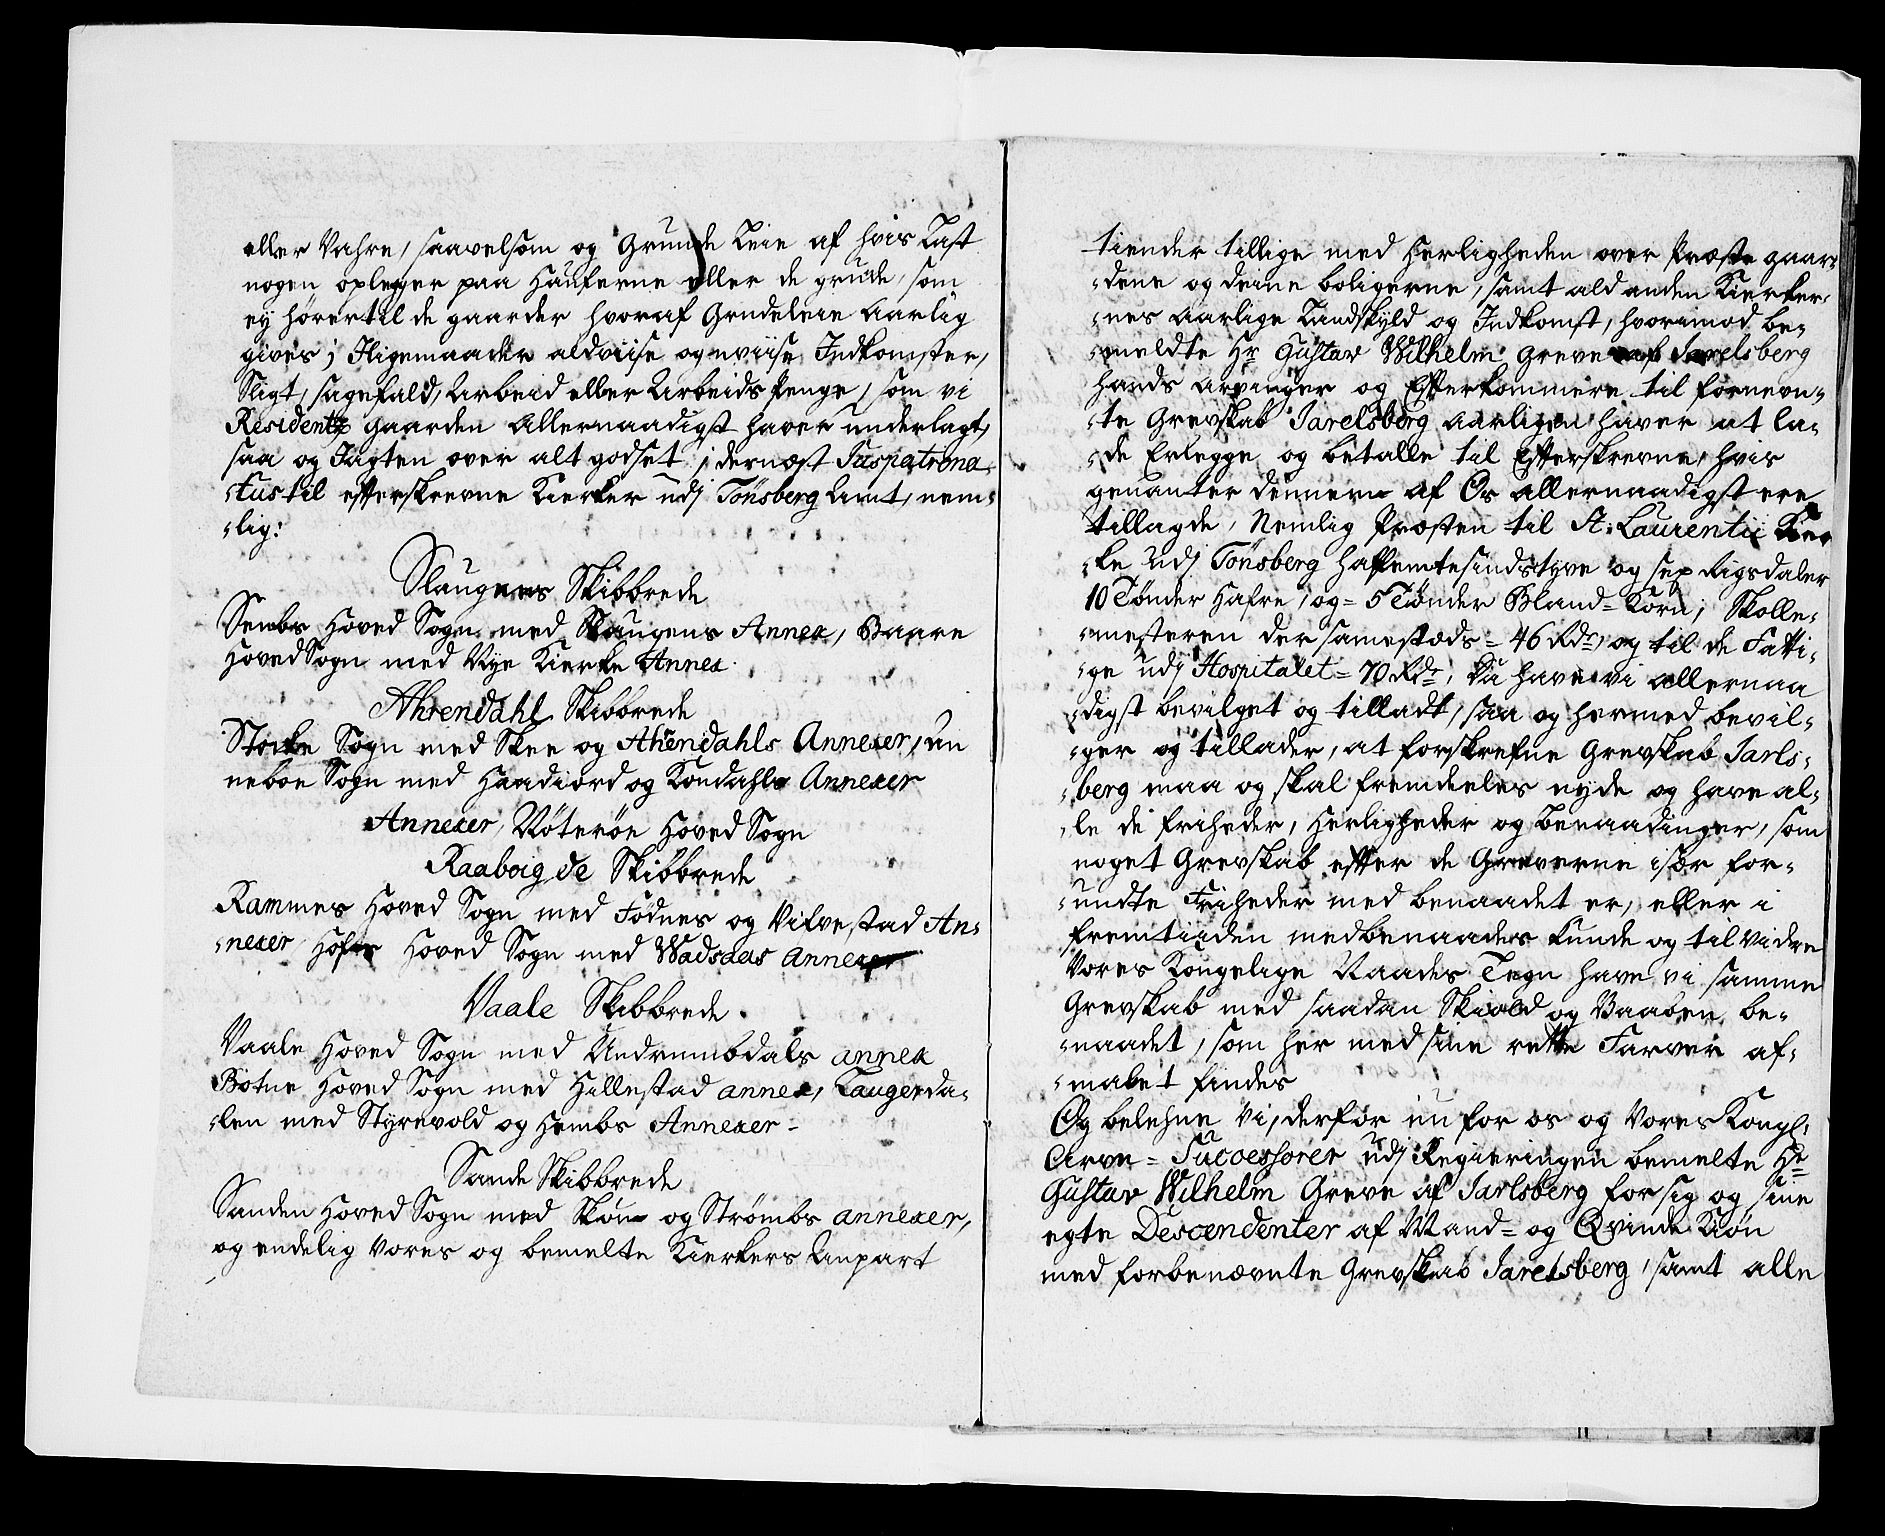 eller Vahre, saavelsom og Grunde Leie af hvis Last
nogen opleger paa Hauferne eller de grude, som
ey hører til de gaarder hvoraf Grudeleie Aarlig
gives; Iligemaader aldviise og uviise Indkomster,
Sligt, sagefald, Arbeid eller Arbeids Penge, som vi
Residentz gaarden Allernaadigst haver underlagt,
saa og Jagten over alt godset; dernæst Juspatrona-
-tus til efterskrevne Kierker udj Tønsberg Amt, nem-
-lig:
Slaugens Skibbrede
Sembs Hoved Sogn med Slaugens Annex, Baare
Hoved Sogn med Nye Kierke Annex.
Ahrendahl Skibbrede
Stocke Sogn med Skee og Ahrendahls Annexer, un
neboe Sogn med Haadiord og Kondahls Annexer
Annexer, Nøterøe Hoved Sogn
Raaboigde Skibbrede
Rammes Hoved Sogn med Fødnes og Vifvestad An-
-nexer, Hofs Hoved Sogn med Wadsaas Annexer
Vaale Skibbrede
Vaale Hoved Sogn med Undrumbdals annex
Botne Hoved Sogn med Hillestad annex, Laugerda-
-len med Styrevold og Hembs Annexer-
Sande Skibbrede
Sanden Hoved Sogn med Skou og Strømbs annexer,
og endelig Vores og bemelte Kierkers Anpart
tiender tillige med Herligheden over Præste gaar-
-dene og deine boligerne, samt ald anden Kierker-
-nes Aarlige Landskyld og Indkomst, hvorimod be-
-meldte Hr Gustav Wilhelm Greve af Jarelsberg
hands arvinger og Efterkommere til fornevn-
-te Grevskab Jarelsberg aarligen haver at la-
-de Erlegge og betalle til Efterskrevne, hvis
genanter dennem af Os allernaadigst ere
tillagde, Nemlig Præsten til St: Laurentii Kier
-ke udj Tønsberg halffemtesindstyve og sex Rigsdaler
10 Tønder Hafre, og = 5 Tønder Bland = Korn; Skolle-
-mesteren dersamestæds = 46 Rdr, og til de Fatti-
-ge udj Hospitalet = 70 Rdr; Saa have vi allernaa
-digst bevilget og tilladt, saa og hermed bevil-
-ger og tillader, at forskrefne Grevskab Jarls-
-berg maa og skal fremdeeles nyde og have al-
-le de friheder, Herligheder og benaadinger, som
noget Grevskab efter de Greverne især for-
-undte Friheder med benaadet er, eller i
fremtiiden medbenaades kunde og til videre
Vores Kongelige Naades Tegn have vi samme
Grevskab med saadan Skiold og Vaaben be-
-naadet, som her med sine rette Farver af-
-malet findes
Og belehne vi, derfor nu for os og Vores Kongl:
Arve = Successorer udj Regieringen bemelte Hr
Gustav Wilhelm Greve af Jarlsberg for sig og sine
egte Descendenter af Mand = og Qvinde Kiøn
med forbenævnte Grevskab Jarelsberg, samt alle